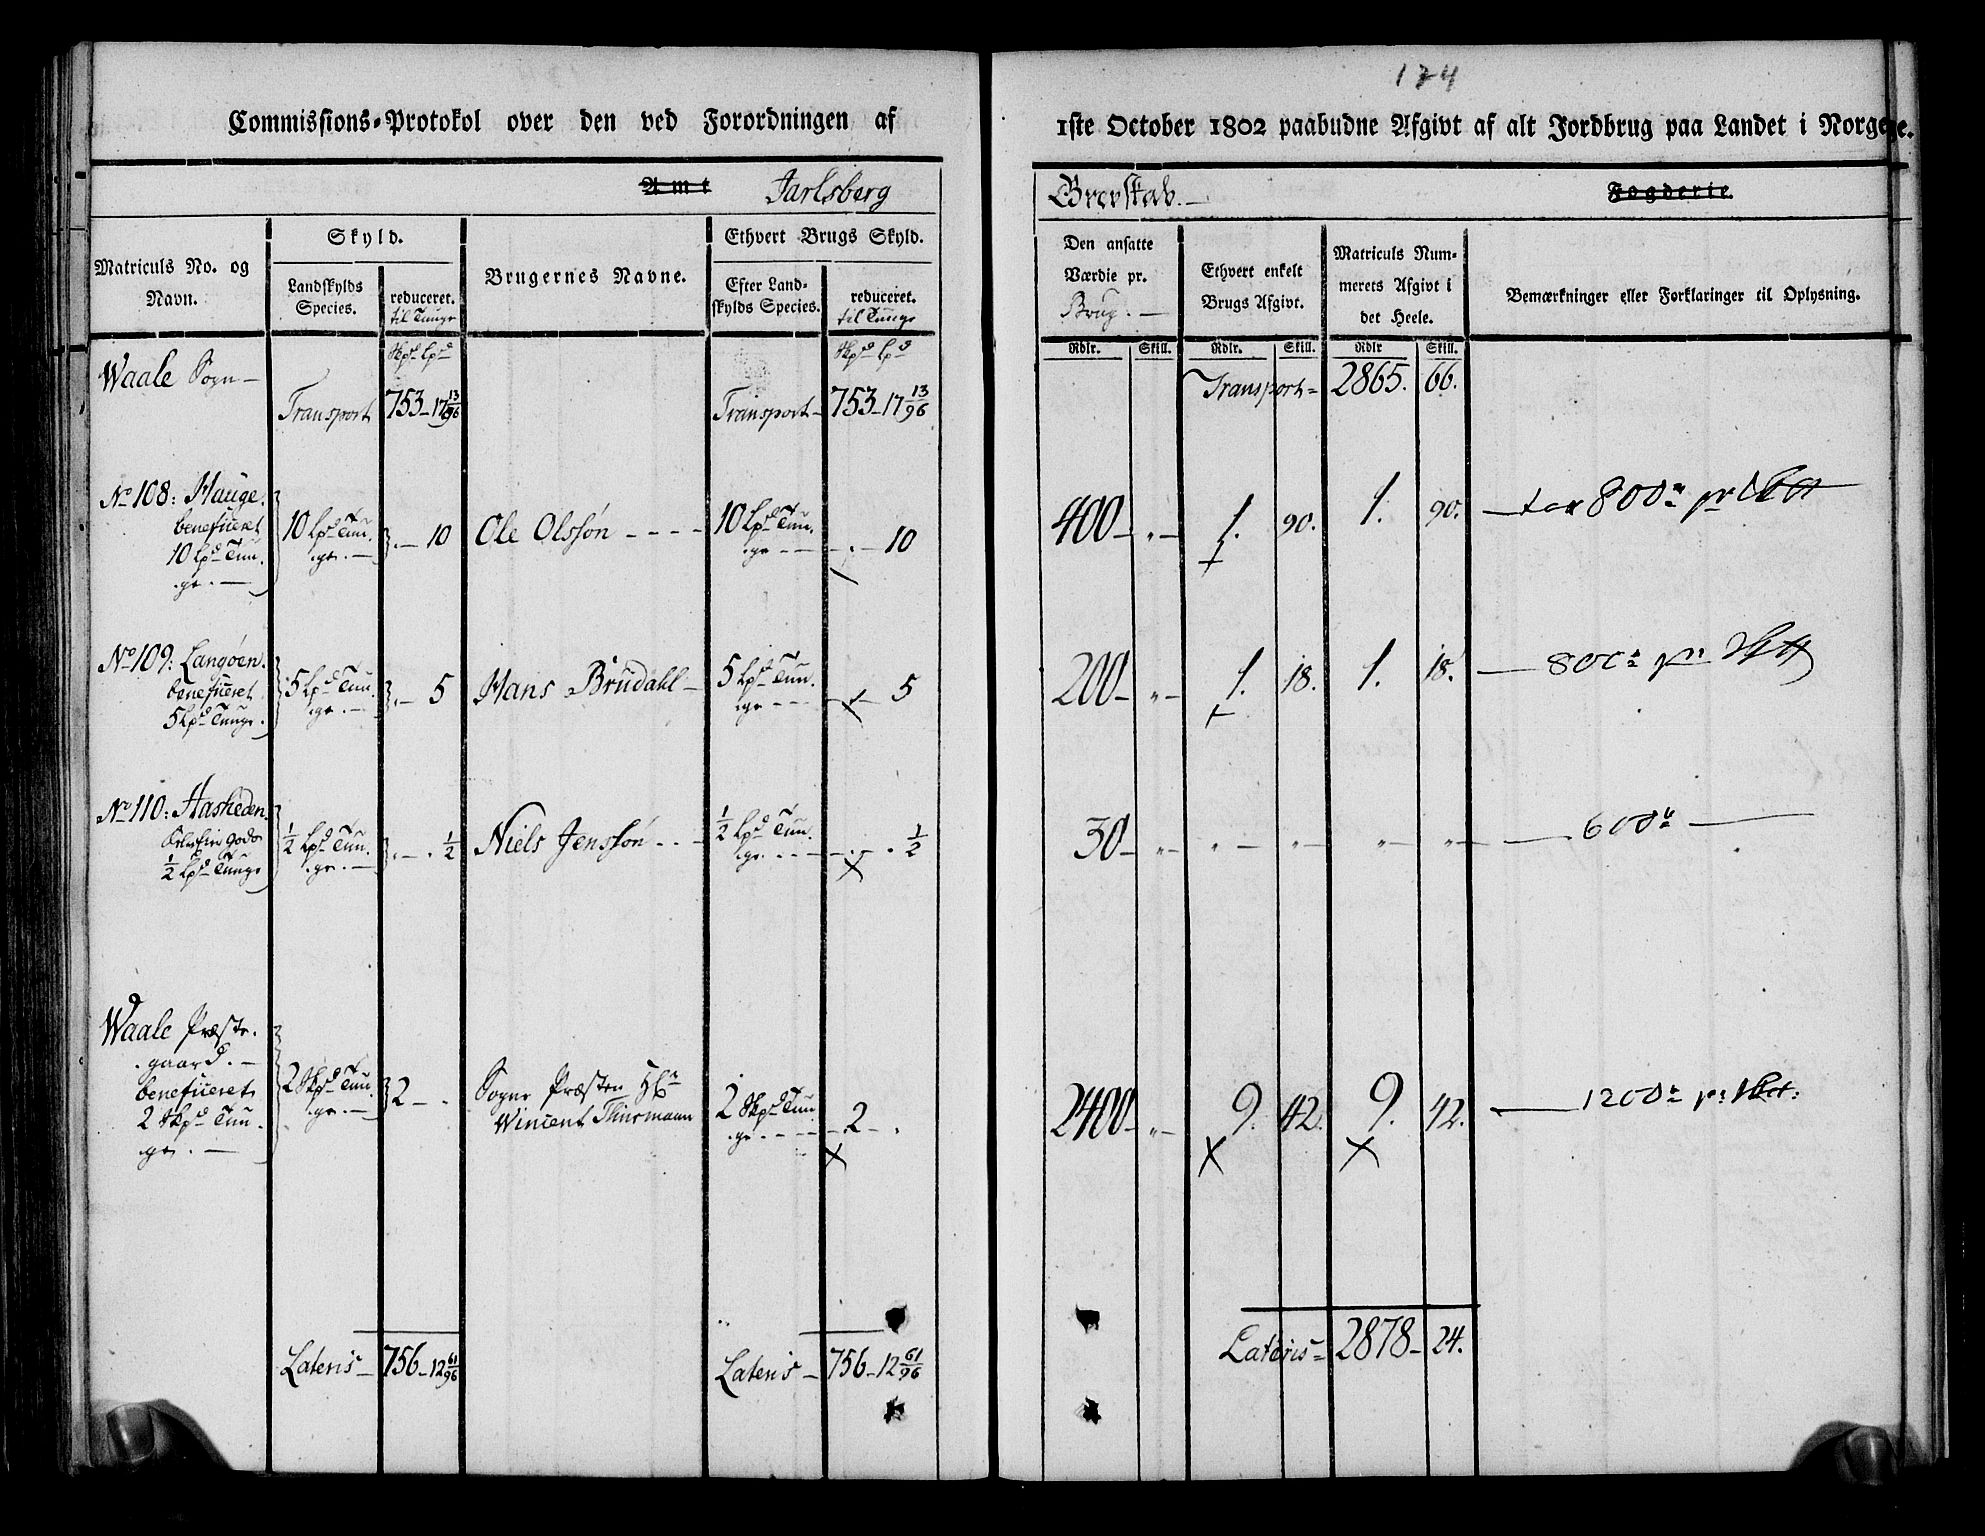 174
Commissions-Protokol over den ved Forordningen af 1ste October 1802 paabudne Afgivt af alt Jordbrug paa Landet i Norge.
Amt Jarlsberg Grevskab. Fogderie.
Matriculs No. og Navn.
Skyld.
Landskylds Species.
reduceret. til Tunge
Brugernes Navne.
Ethvert Brugs Skyld.
Efter Landskylds Species.
reduceret. til Tunge
Den ansatte Værdie pr. Brug.
Ethvert enkelt Brugs Afgivt.
Matriculs Nummerets Afgivt i det Heele.
Bemærkninger eller Forklaringer til Oplysning.
Skpd Lpd Skpd Lpd Rdlr. Skill. Rdlr. Skill. Rdlr Skill.
Waale Sogn
Transport 753 - 17 13/96 Transport 753 - 17 13/96 Transport 2865. 66.
No 108: Hauge. beneficeret 10 Lpd Tunge. 10 Lpd Tunge. 10 Ole Olssøn 10 Lpd Tunge 10 400 1. 90. 1. 90. 800
No 109: Langøen. beneficeret 5 Lpd Tunge. 5 Lpd Tunge. 5 Hans Brudahl 5 Lpd Tunge 5 200 1. 18. 1. 18. 800
No 110: Aasheden. 1/2 Lpd Tunge 1/2 Lpd Tunge. 1/2 Niels Jenssøn 1/2 Lpd Tunge. 1/2 30 600
Waale Præstegaard. beneficeret 2 Skpd Tunge. 2 Skpd Tunge. 2 Sogne Præsten Hr Wincent Thurmann 2 Skpd Tunge 2 2400 9. 42. 9. 42. 1200
Lateris 756 - 12 61/96 Lateris 756 - 12 61/96 Lateris 2878 - 24.